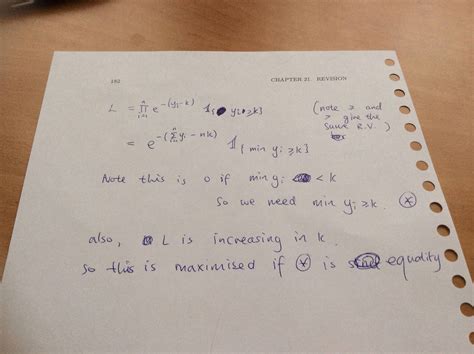 182 CHAPTER 21. REVISION
L = ∏_{i=1}^{n} e^{-(y_i-k)} 𝟙{ y_i ≥ k} (note > and
≥ give the
same R.V. )
= e^{-(∑_{i=1}^{n} y_i - nk)} 𝟙{ min y_i ≥ k}
Note this is 0 if min y_i < k
So we need min y_i ≥ k. (*)
also, L is increasing in k.
So this is maximised if (*) is equality